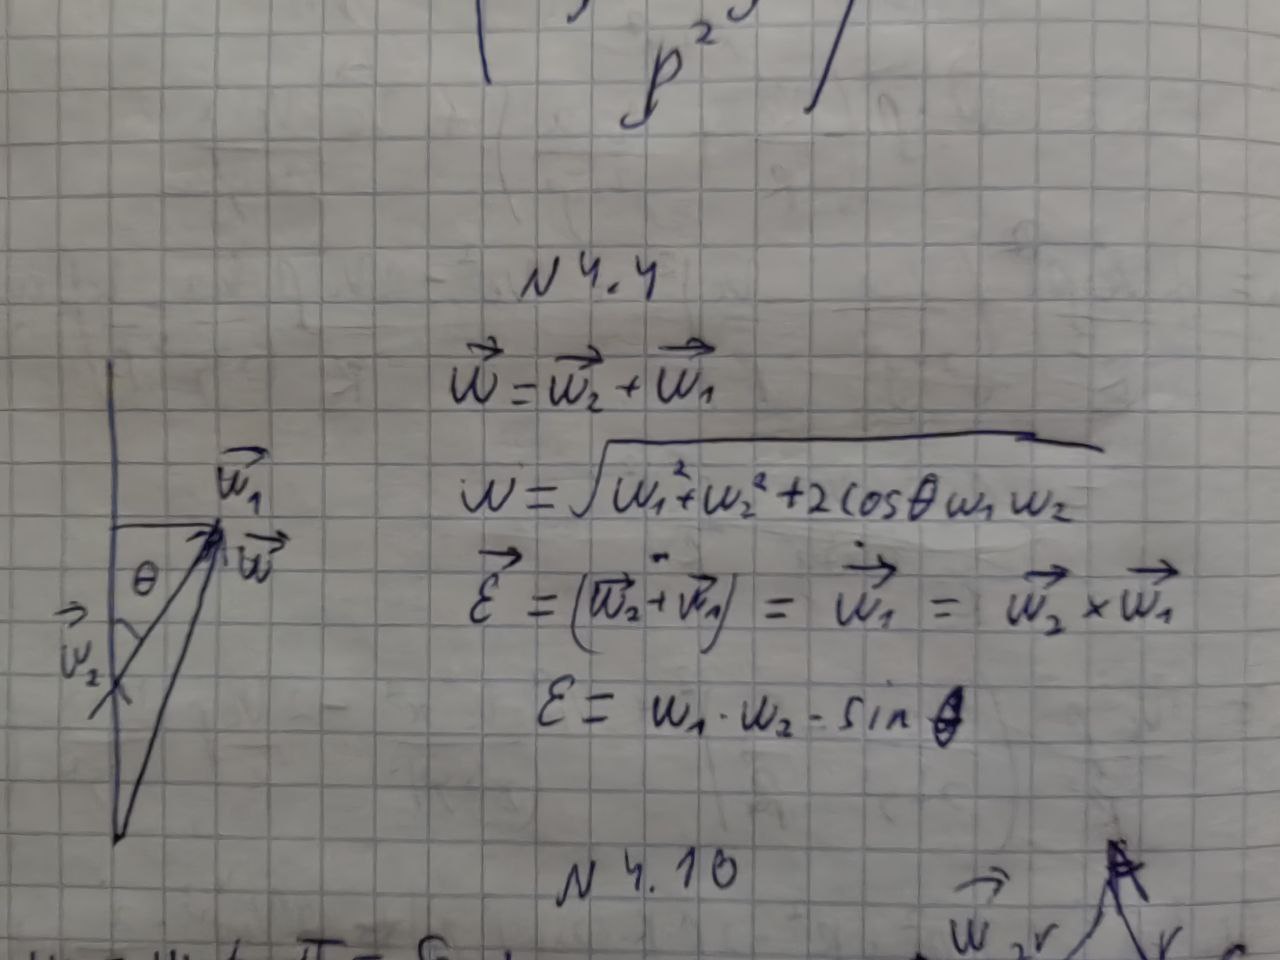 p²
N 4.4
w⃗ = w⃗₂ + w⃗₁
w = √(w₁² + w₂² + 2 cosθ w₁ w₂)
ε⃗ = (w⃗₂ + w⃗₁)˙ = ẇ⃗₁ = w⃗₂ × w⃗₁
ε = w₁ · w₂ · sin θ
w⃗₁
w⃗
θ
w⃗₂
N 4.10
w⃗
r
r